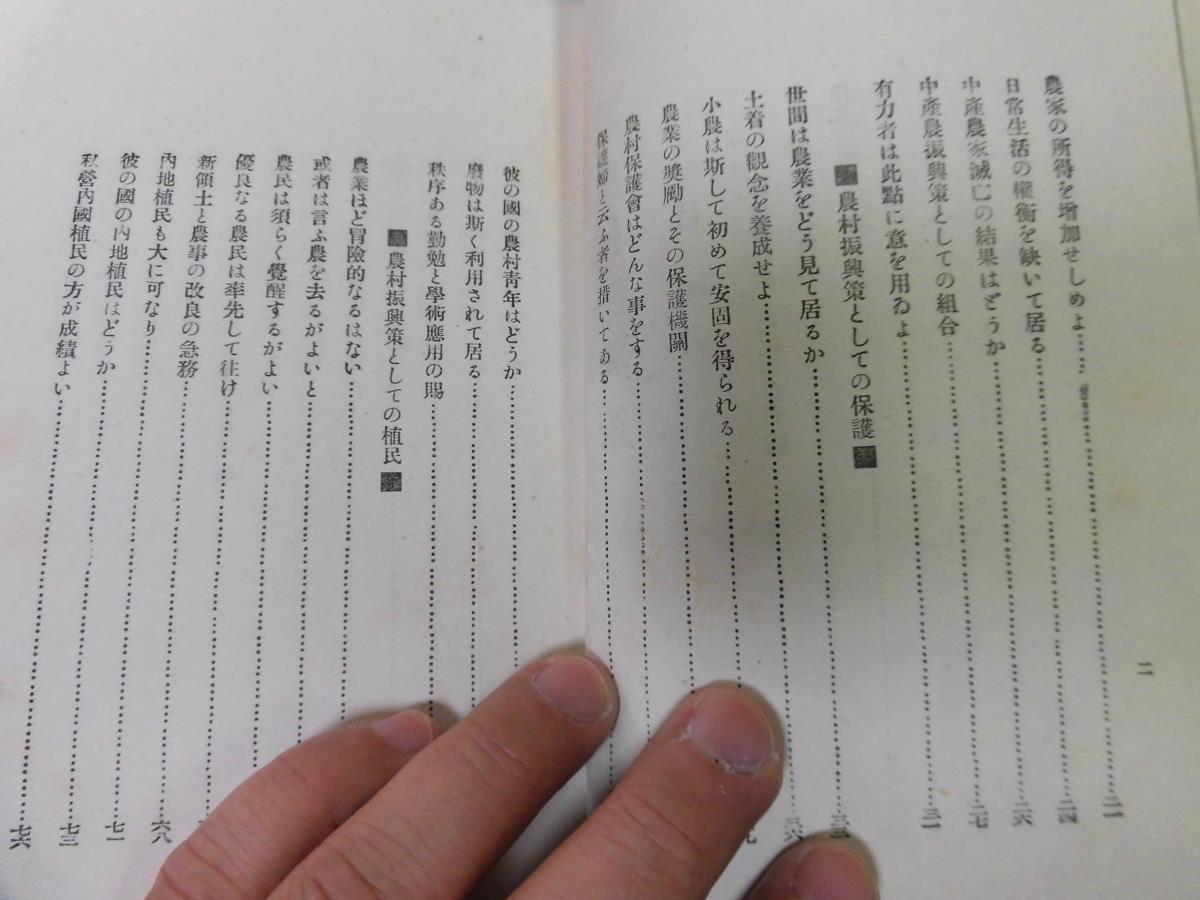 二
農家の所得を增加せしめよ……二一
日常生活の權衡を缺いて居る……二四
中產農家滅亡の結果はどうか……二六
中產農振興策としての組合……二七
有力者は此點に意を用ゐよ……三一
農村振興策としての保護
世間は農業をどう見て居るか……三三
土着の觀念を養成せよ……三六
小農は斯して初めて安固を得られる……九
農業の奬勵とその保護機關……
農村保護會はどんな事をする……
保護婦と云ふ者を措いてある……
彼の國の農村靑年はどうか……
廢物は斯く利用されて居る……
秩序ある勤勉と學術應用の賜……
農村振興策としての植民
農業ほど冒險的なるはない……
或者は言ふ農を去るがよいと……
農民は須らく覺醒するがよい……
優良なる農民は率先して往け……
新領土と農事の改良の急務……
內地植民も大に可なり……六八
彼の國の內地植民はどうか……七一
私營內國植民の方が成績よい……七三
七六